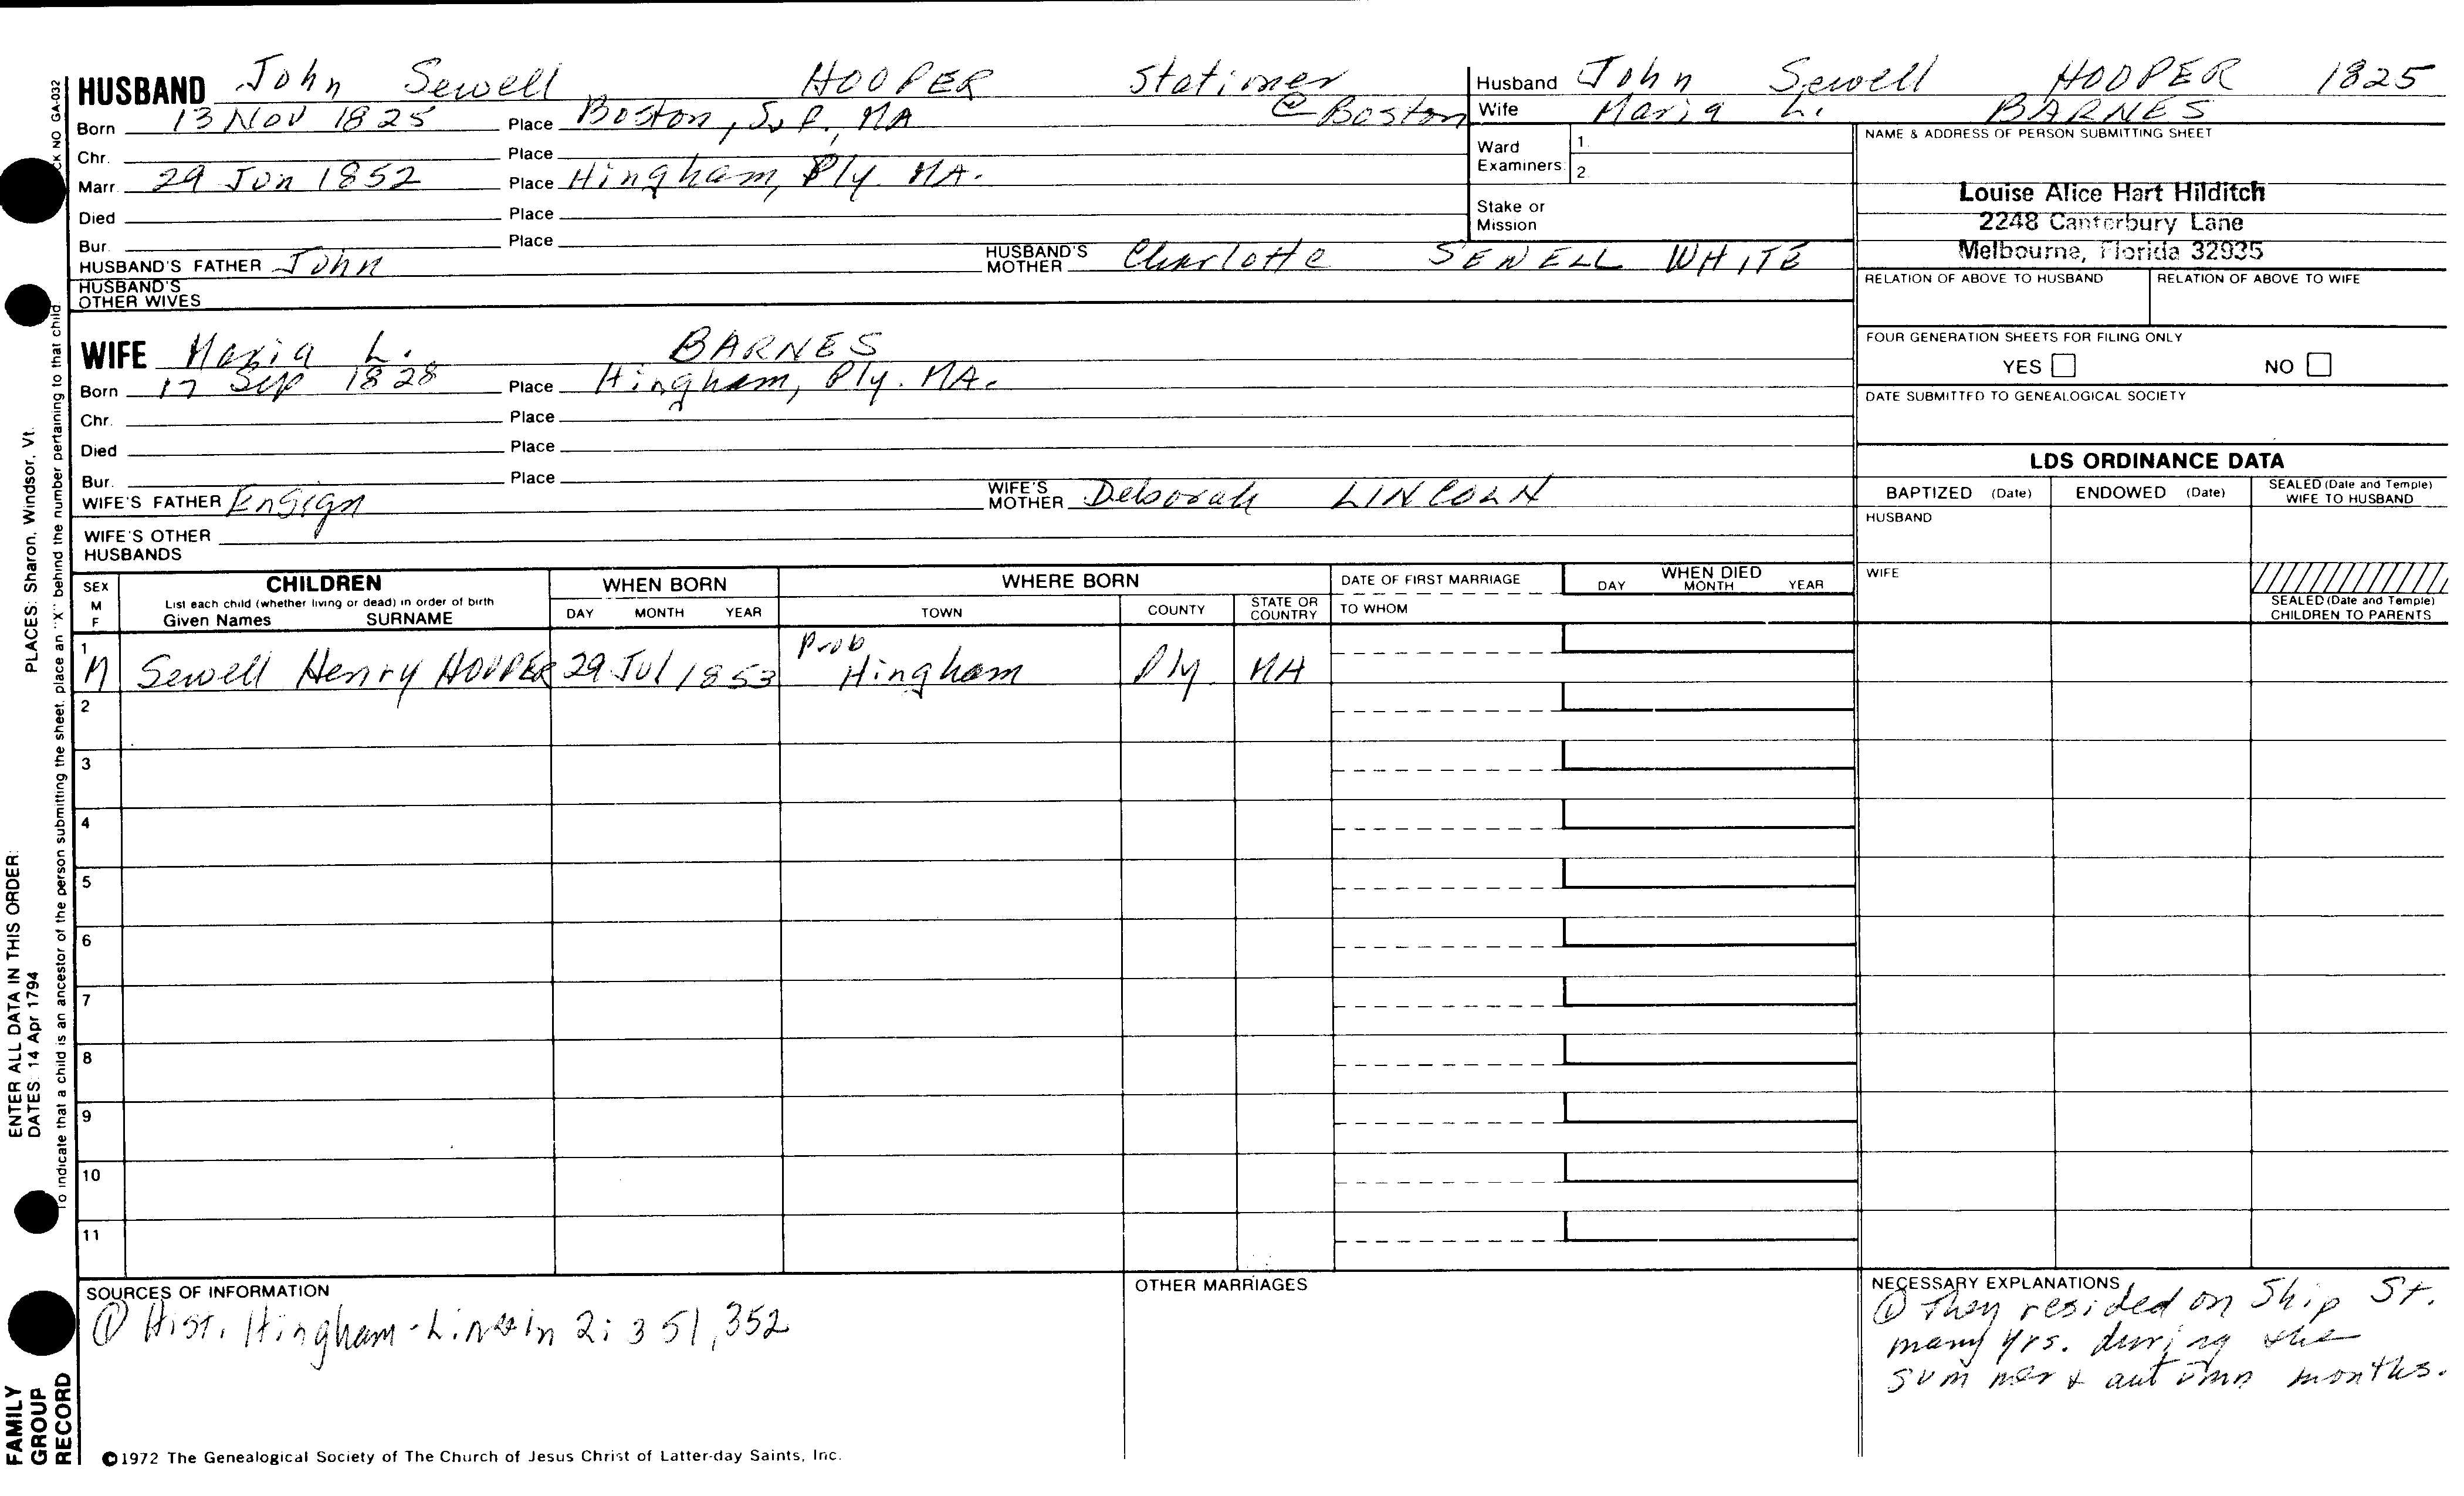 HUSBAND John Sewell HOOPER Stationer
Born 13 Nov 1825 Place Boston, Suf., MA @ Boston
Chr. Place
Marr. 29 Jun 1852 Place Hingham, Ply. MA.
Died Place
Bur. Place
HUSBAND'S FATHER John HUSBAND'S MOTHER Charlotte SEWELL WHITE
HUSBAND'S OTHER WIVES
WIFE Maria L. BARNES
Born 17 Sep 1828 Place Hingham, Ply. MA.
Chr. Place
Died Place
Bur. Place
WIFE'S FATHER Ensign WIFE'S MOTHER Deborah LINCOLN
WIFE'S OTHER HUSBANDS
Husband John Sewell HOOPER 1825
Wife Maria L. BARNES
Ward Examiners: 1. 2.
Stake or Mission
NAME & ADDRESS OF PERSON SUBMITTING SHEET
Louise Alice Hart Hilditch
2248 Canterbury Lane
Melbourne, Florida 32935
RELATION OF ABOVE TO HUSBAND RELATION OF ABOVE TO WIFE
FOUR GENERATION SHEETS FOR FILING ONLY
YES NO
DATE SUBMITTED TO GENEALOGICAL SOCIETY
LDS ORDINANCE DATA
BAPTIZED (Date) ENDOWED (Date) SEALED (Date and Temple) WIFE TO HUSBAND
HUSBAND
WIFE
SEALED (Date and Temple) CHILDREN TO PARENTS
SEX M F
CHILDREN
List each child (whether living or dead) in order of birth
Given Names SURNAME
WHEN BORN
DAY MONTH YEAR
WHERE BORN
TOWN COUNTY STATE OR COUNTRY
DATE OF FIRST MARRIAGE
TO WHOM
WHEN DIED
DAY MONTH YEAR
1 M Sewell Henry HOOPER 29 Jul 1853 Prob Hingham Ply MA
2
3
4
5
6
7
8
9
10
11
SOURCES OF INFORMATION
① Hist. Hingham-Lincoln 2:351,352
OTHER MARRIAGES
NECESSARY EXPLANATIONS
① They resided on Ship St.
many yrs. during the
summer & autumn months.
©1972 The Genealogical Society of The Church of Jesus Christ of Latter-day Saints, Inc.
FAMILY
GROUP
RECORD
ENTER ALL DATA IN THIS ORDER:
DATES: 14 Apr 1794
PLACES: Sharon, Windsor, Vt.
To indicate that a child is an ancestor of the person submitting the sheet, place an "X" behind the number pertaining to that child
NO GA-032